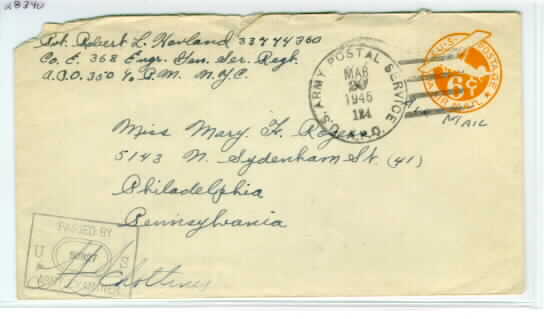 28340
Pvt. Robert L. Hovland 33774360
Co. E. 368 Engr. Gen. Ser. Regt.
A.P.O. 350 % P.M. N.Y.C.
U.S. ARMY POSTAL SERVICE
MAR
20
1945
A.P.O.
U.S. POSTAGE
6¢
AIR MAIL
MAIL
Miss Mary H.
5143 N. Sydenham St. (41)
Philadelphia
Pennsylvania
PASSED BY
U S
ARMY EXAMINER